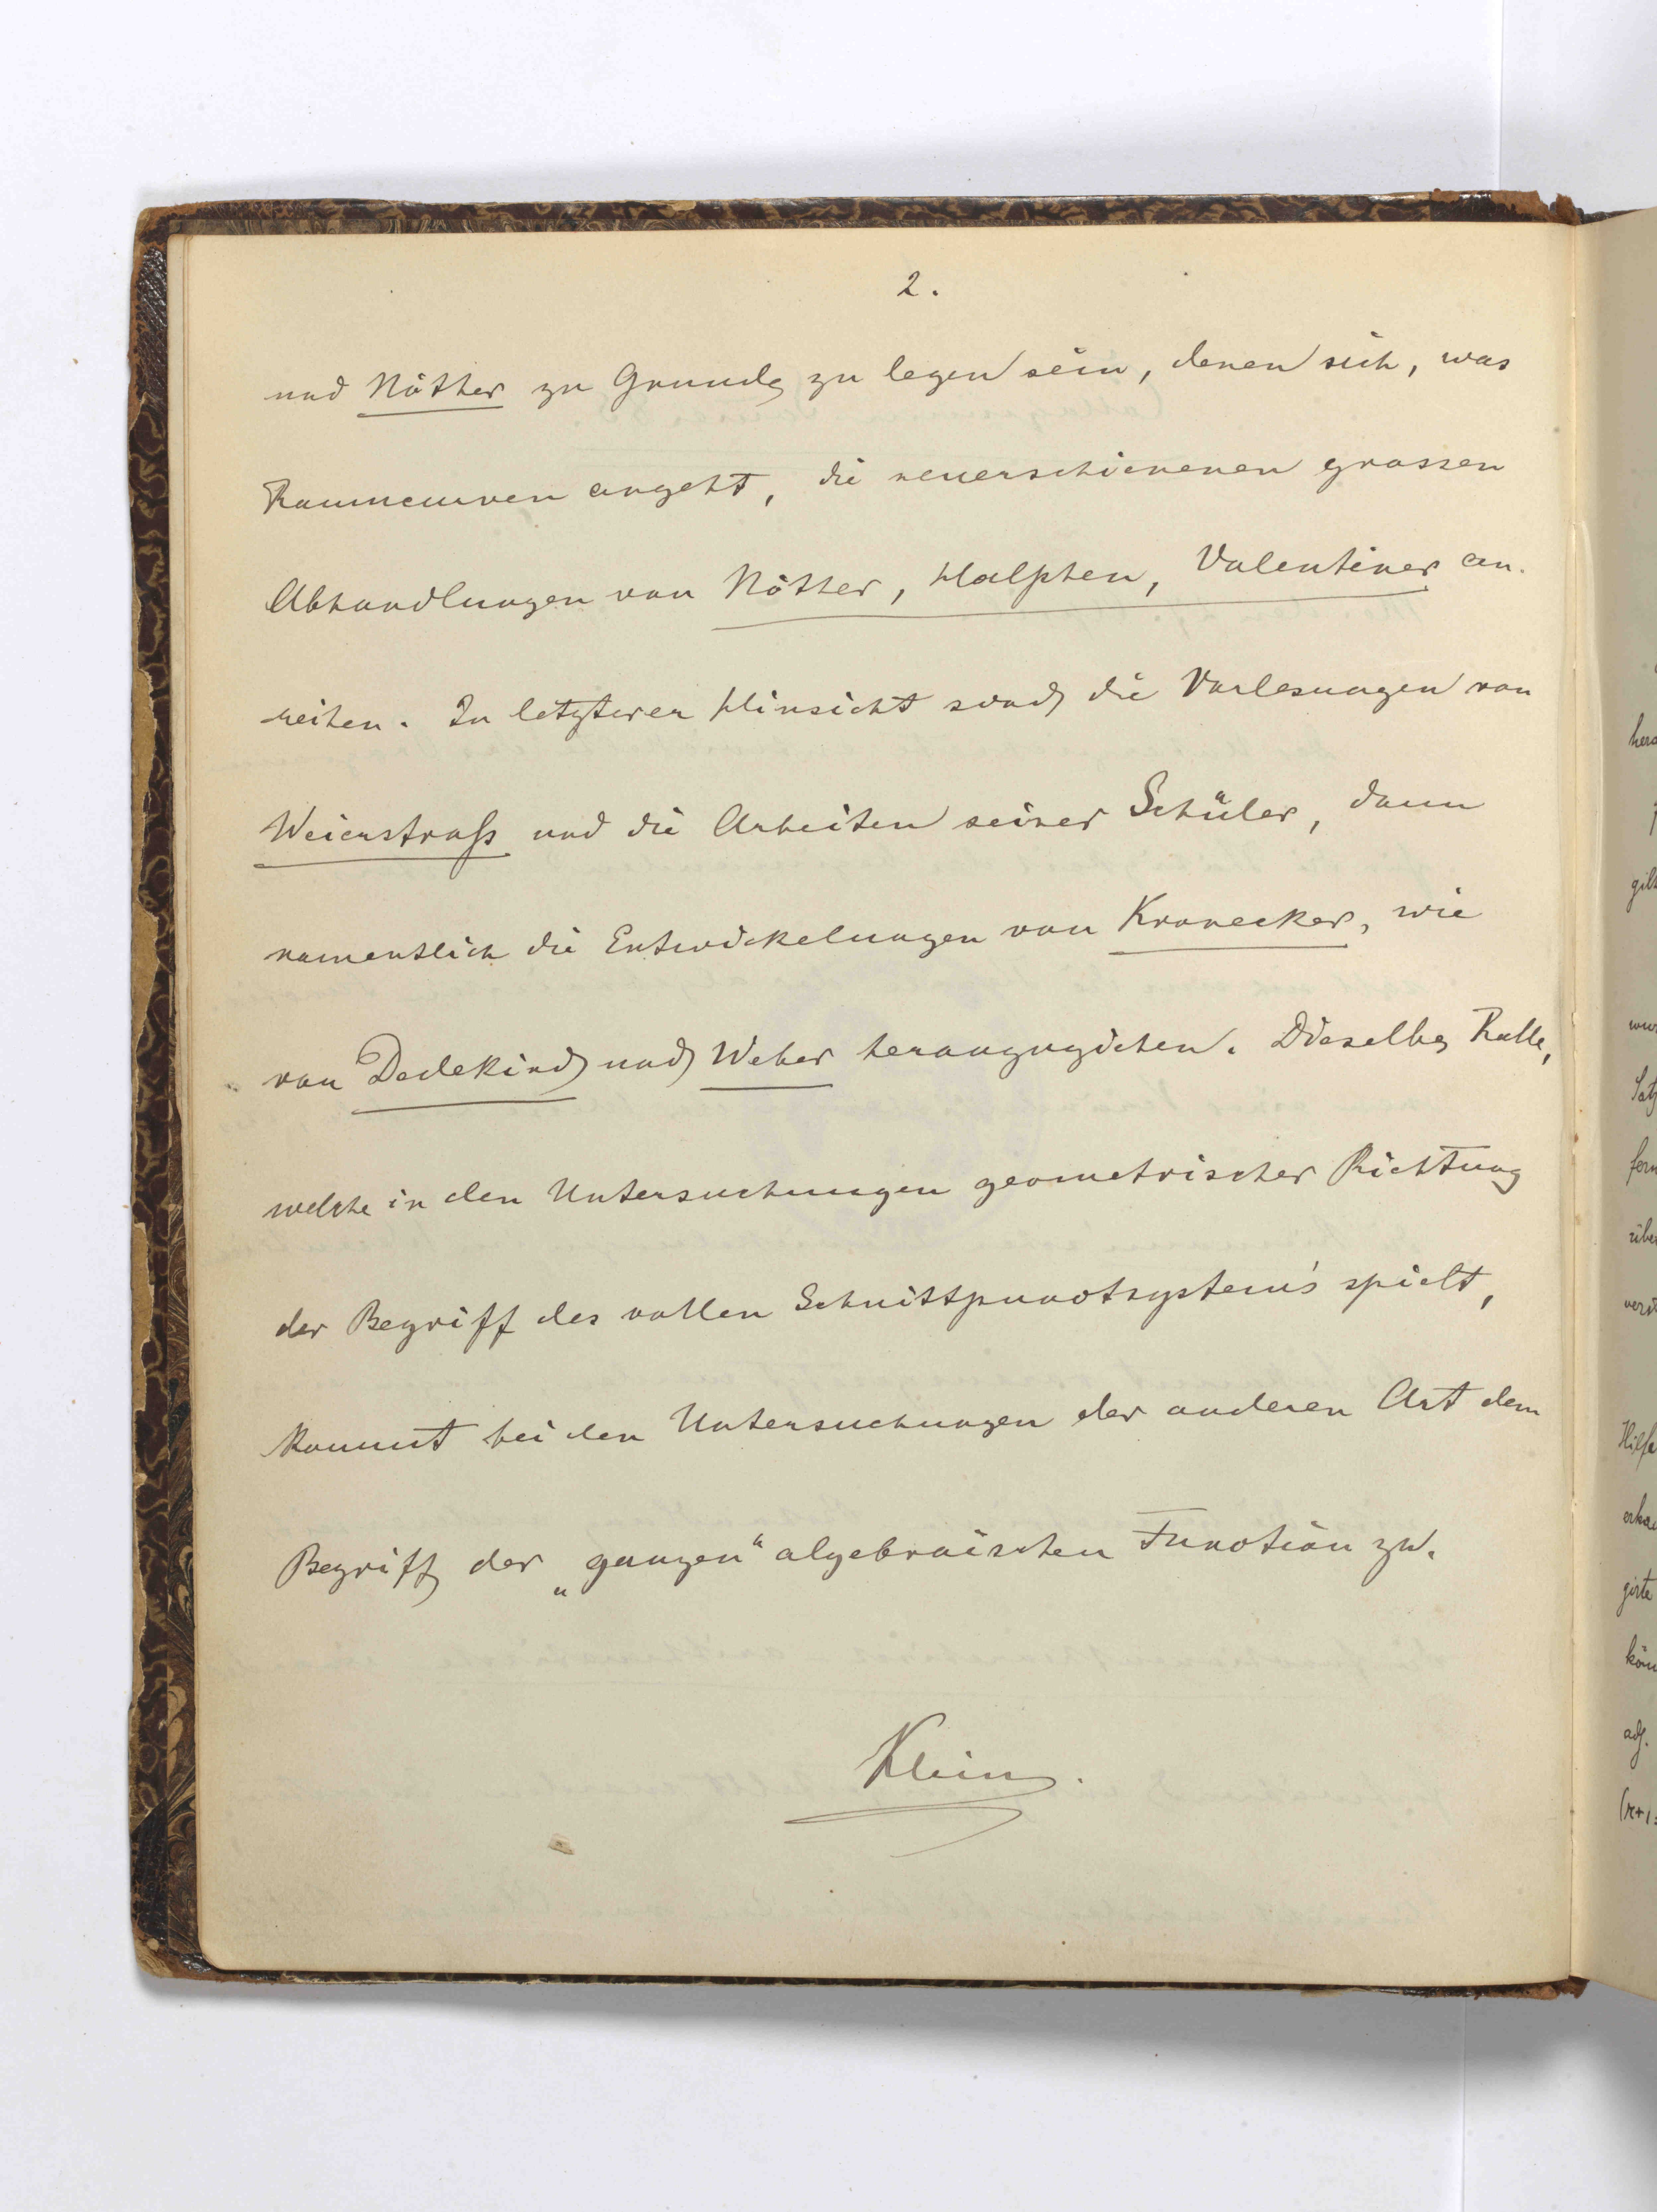 2.
und Nöther zu Grunde zu legen sein, denen sich, was
Raumcurven angeht, die neuerschienenen grossen
Abhandlungen von Nöther, Halphen, Valentiner an-
reihen. In letzterer Hinsicht sind die Vorlesungen von
Weierstraß und die Arbeiten seiner Schüler, dann
namentlich die Entwickelungen von Kronecker, wie
von Dedekind und Weber heranzuziehen. Dieselbe Rolle,
welche in den Untersuchungen geometrischer Richtung
der Begriff des vollen Schnittpunctsystem's spielt,
kommt bei den Untersuchungen der anderen Art dem
Begriff der „ganzen“ algebraischen Function zu.
Klein.
gilt
Satz